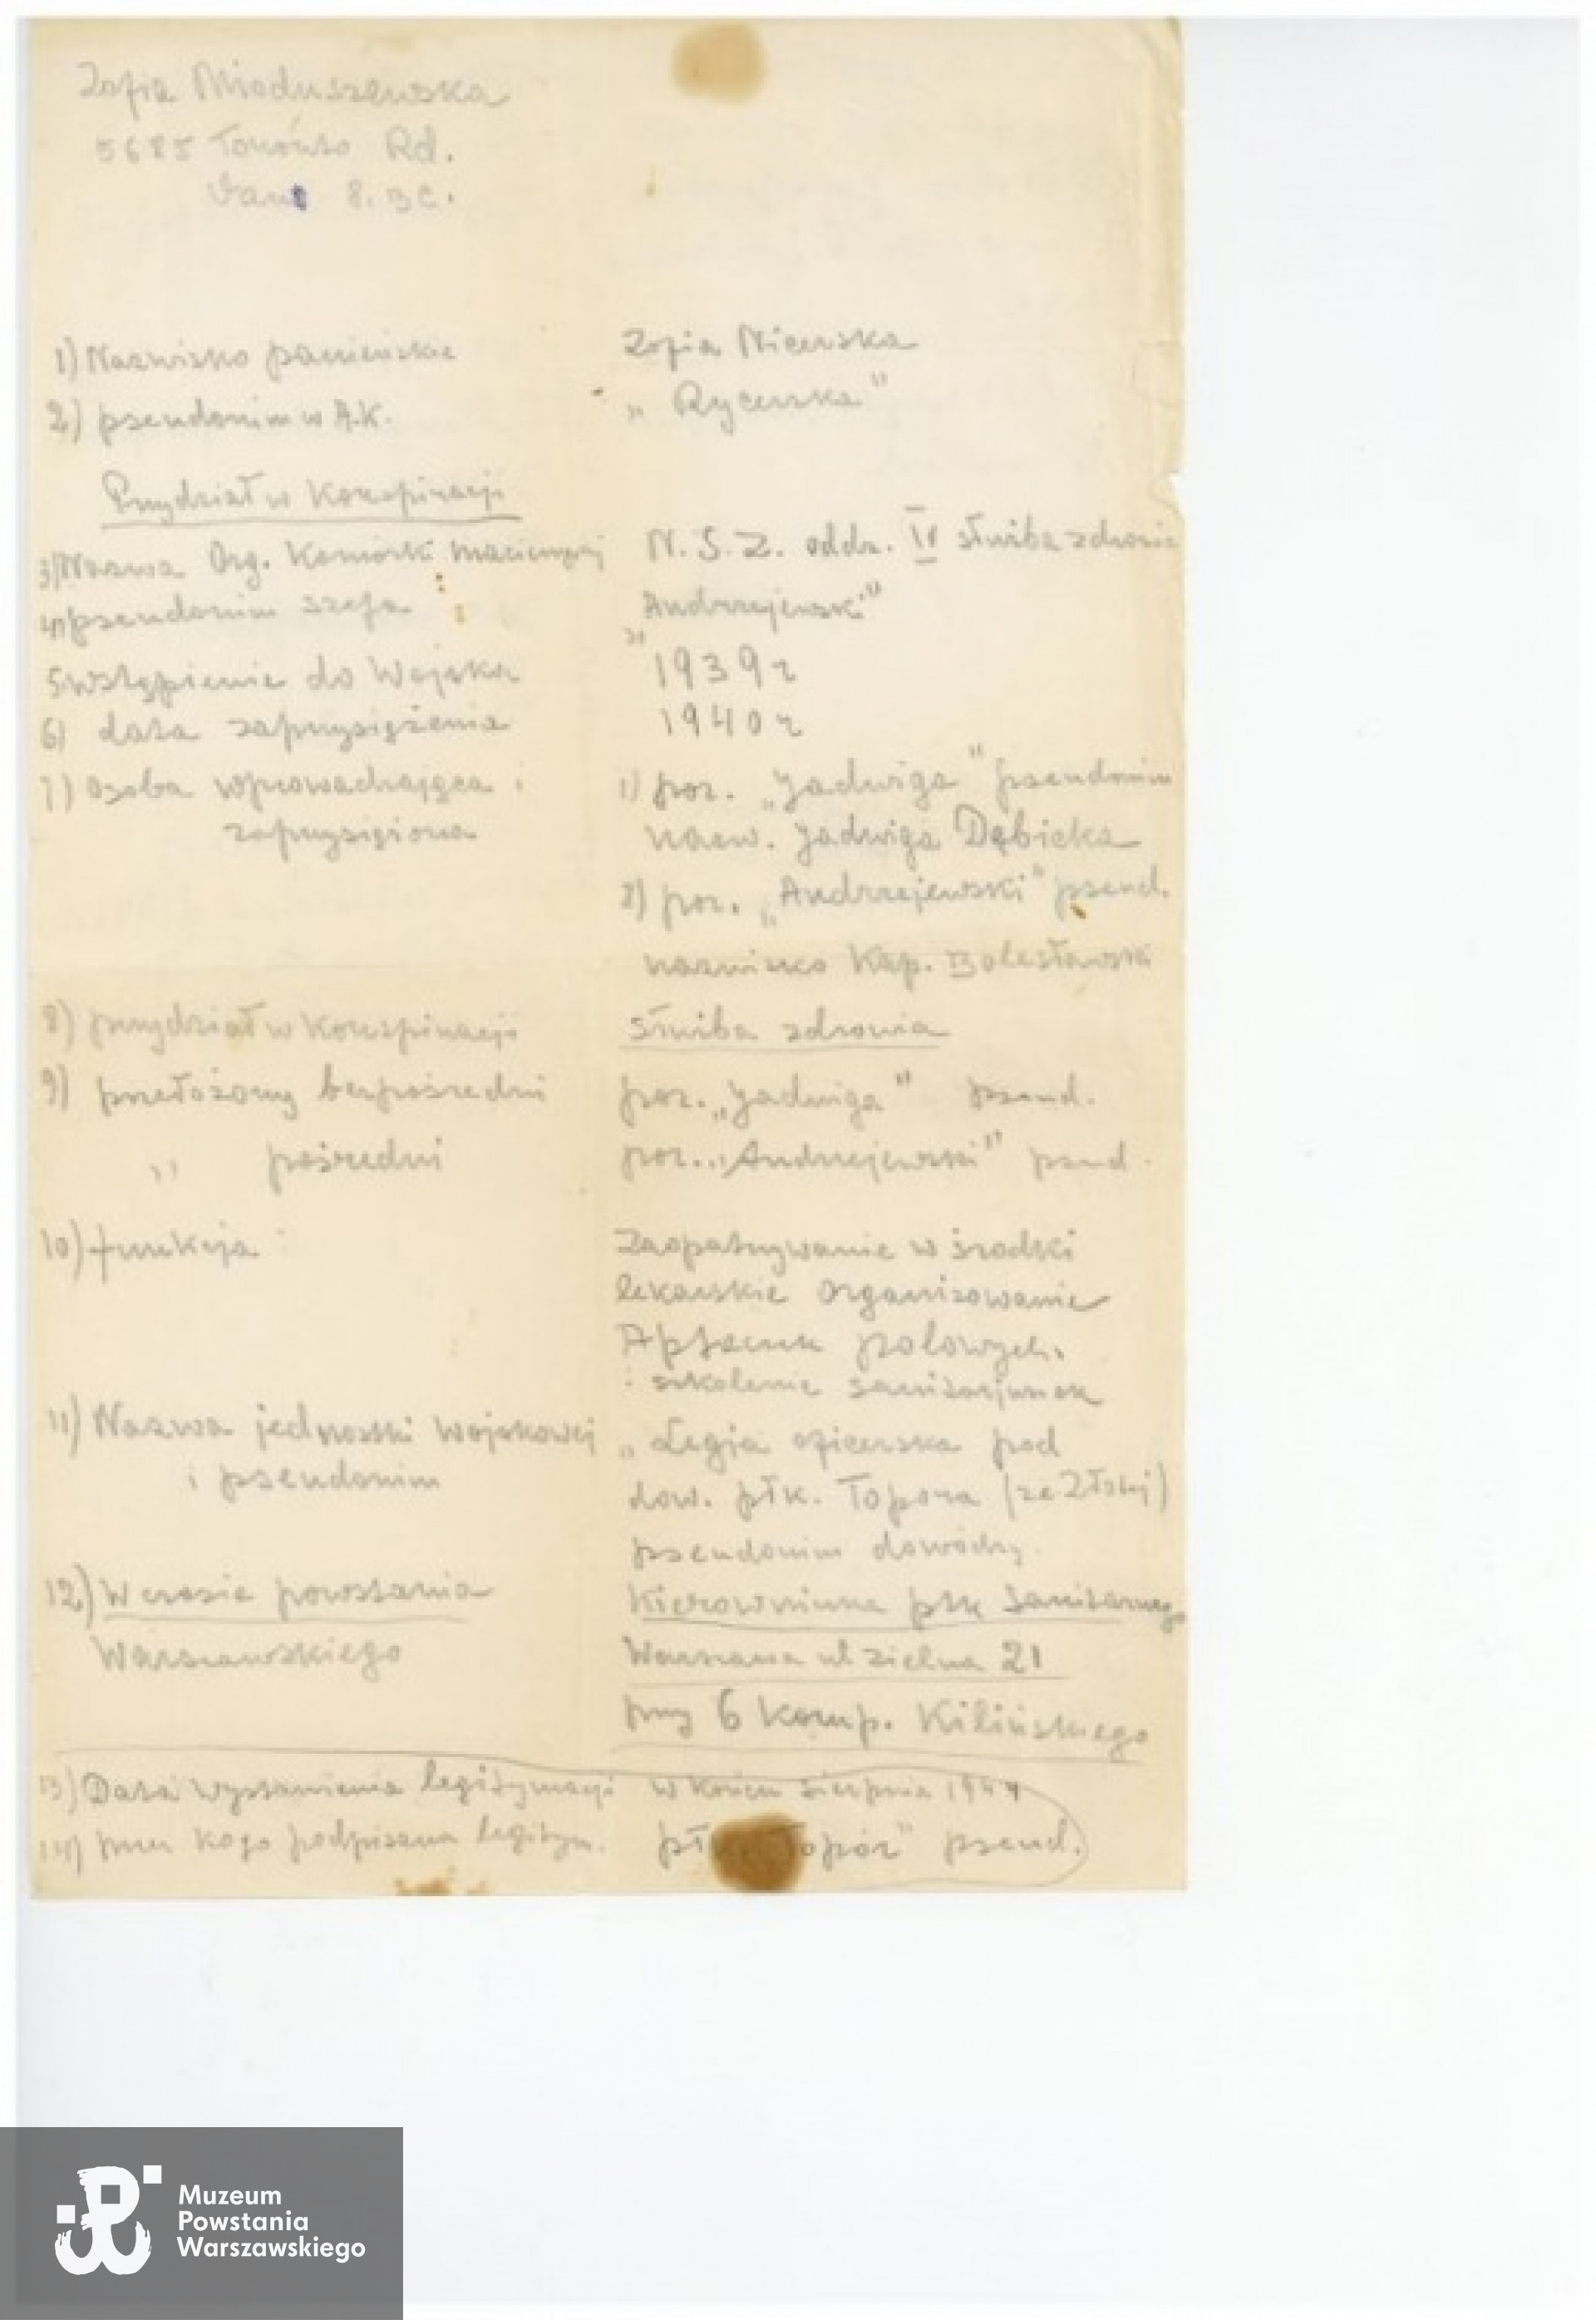 Zofia Mioduszewska
5685 Toronto Rd.
Vanc 8. BC.
1) Nazwisko panieńskie Zofia Nicerska
2) pseudonim w A.K. „Rycerska"
Przydział w Konspiracji
3) Nazwa Org. Komórki macierzystej N.S.Z. oddz. IV służba zdrowia
4) pseudonim szefa „Andrzejewski"
5. Wstąpienie do Wojska 1939 r
6) data zaprzysiężenia 1940 r
7) Osoba wprowadzająca i 1) por. „Jadwiga" pseudonim
zaprzysiężona nazw. Jadwiga Dębicka
2) por. „Andrzejewski" pseud.
nazwisko Kap. Bolesławski
8) przydział w Konspiracji służba zdrowia
9) przełożony bezpośredni por. „Jadwiga" pseud.
„ pośredni por. „Andrzejewski" pseud.
10) funkcja: Zaopatrywanie w środki
lekarskie Organizowanie
Apteczek polowych.
i szkolenie sanitarjuszek
11) Nazwa jednostki Wojskowej „Legja oficerska pod
i pseudonim dow. płk. Topora (ze Złotej)
pseudonim dowódcy.
12) W czasie powstania Kierowniczka pkt Sanitarnego
Warszawskiego Warszawa ul Zielna 21
przy 6 Komp. Kilińskiego
13) Data Wystawienia legitymacji w końcu Sierpnia 1944
14) przez kogo podpisana legitym. płk. „Topór" pseud.
Muzeum
Powstania
Warszawskiego